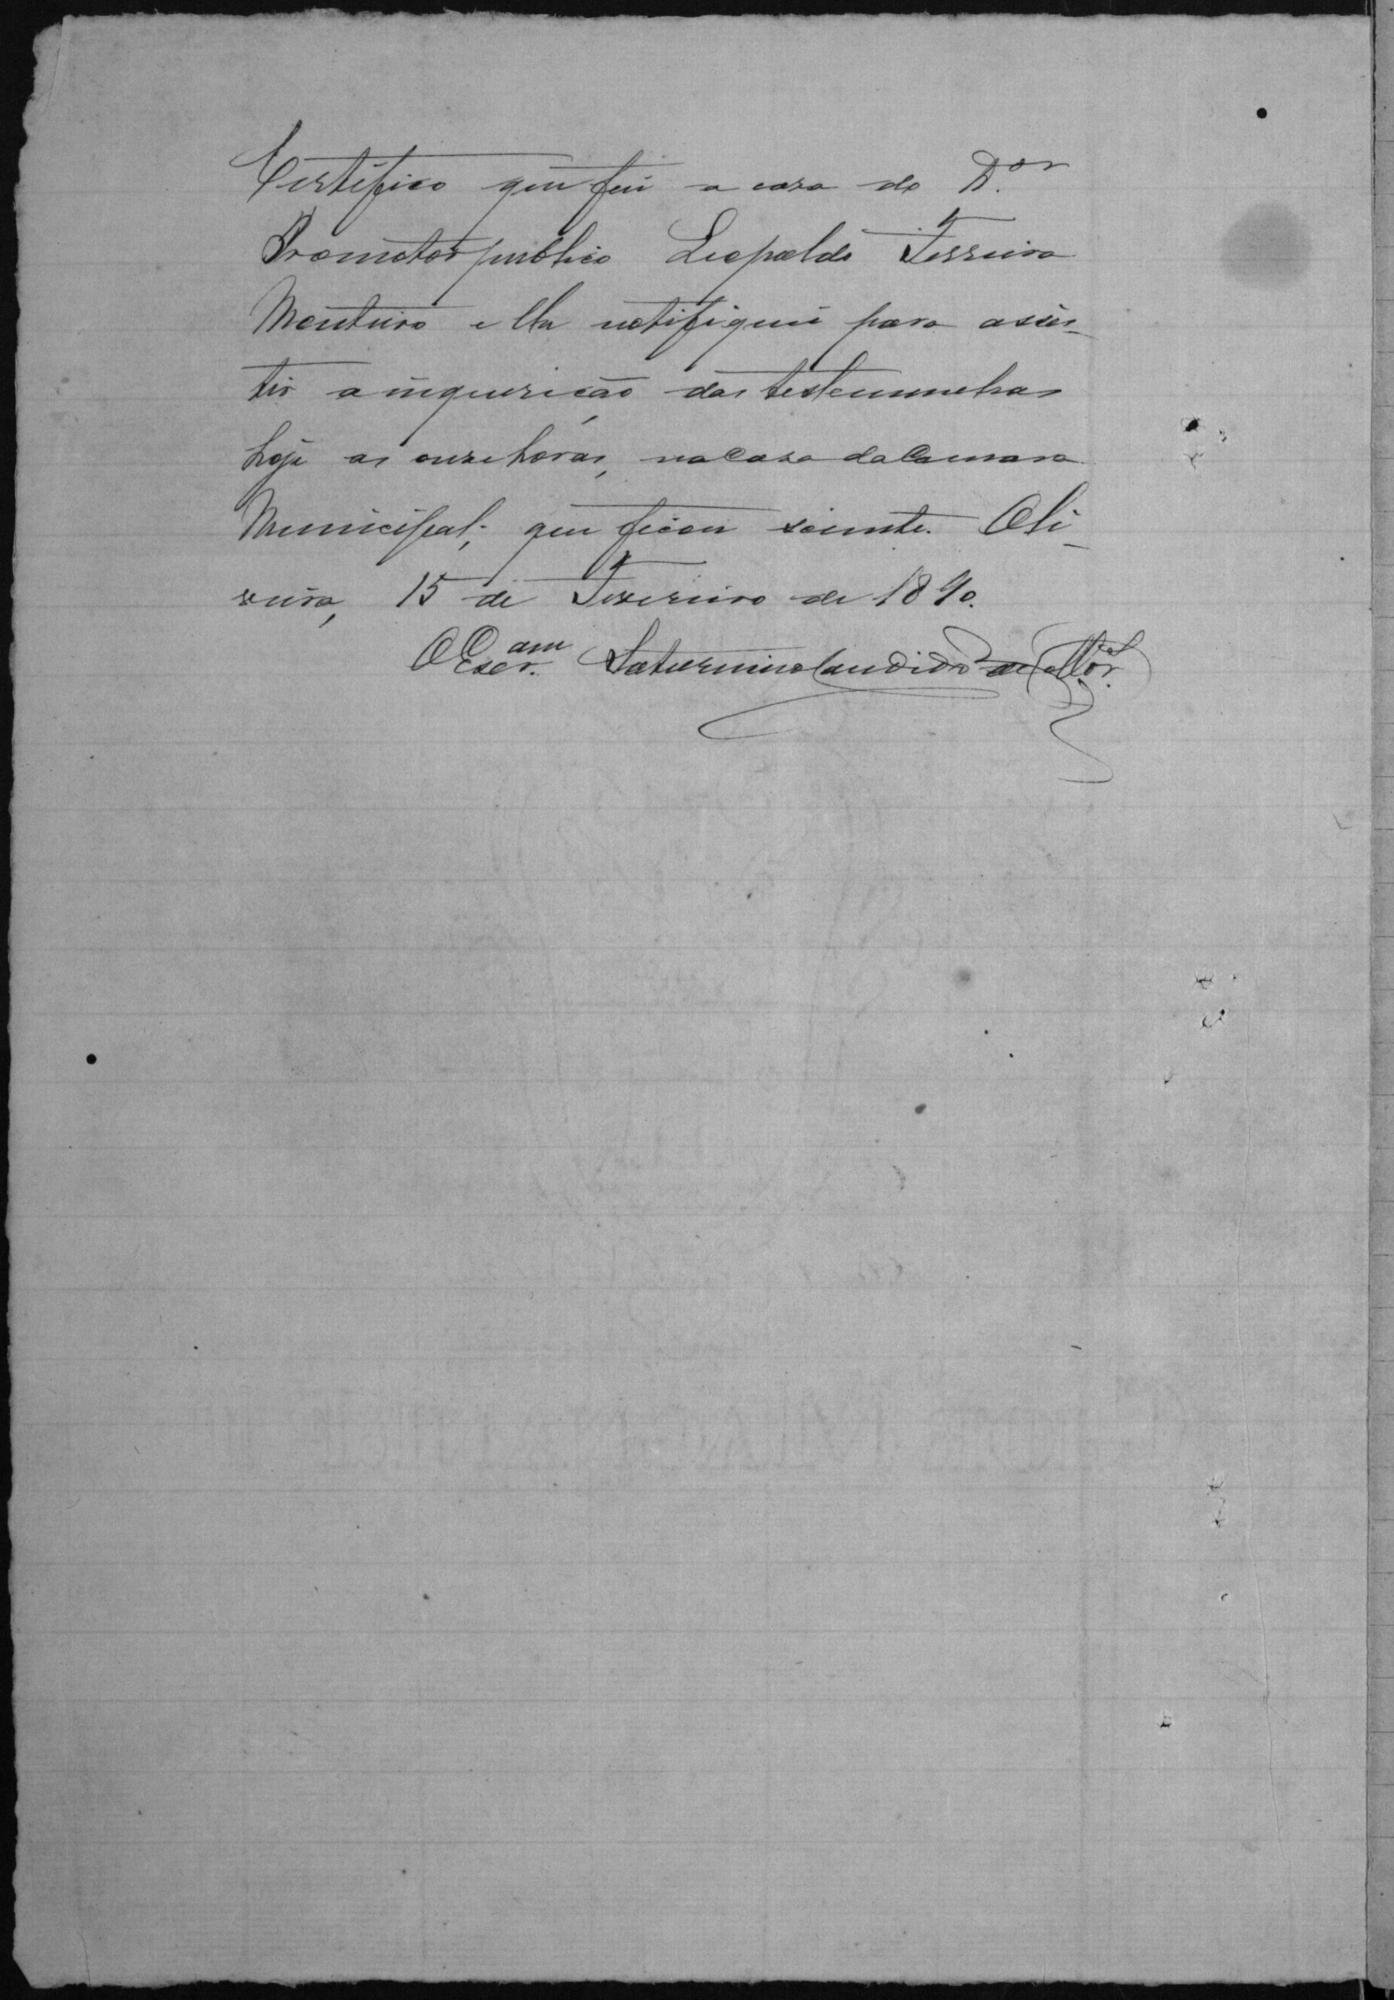 Certifico que fui a casa do D.or
Promotor publico Leopoldo Ferreira
Monteiro e lla notifiquei para assis-
tir a inquerição das testemunhas
hoje as onze horas, na Casa da Camara
Municipal; que ficou sciente. Oli-
veira, 15 de Fevereiro de 1890.
O Escr.am Saturnino Candido de